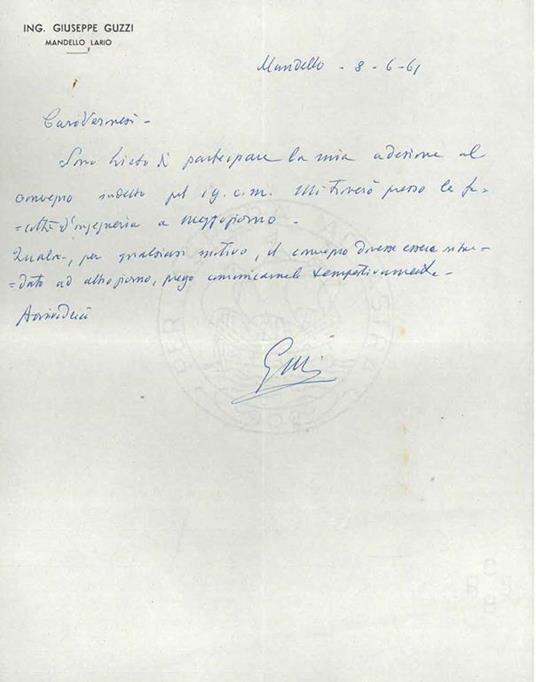 ING. GIUSEPPE GUZZI
MANDELLO LARIO
Mandello - 8-6-61
Caro Vernesi -
Sono lieto di partecipare la mia adesione al
convegno indetto pel 19. c.m. Mi troverò presso la fa-
=coltà d'ingegneria a mezzogiorno -
Qualora, per qualsiasi motivo, il convegno dovesse essere riman-
=dato ad altro giorno, prego comunicarmelo tempestivamente -
Arrivederci
Guzzi